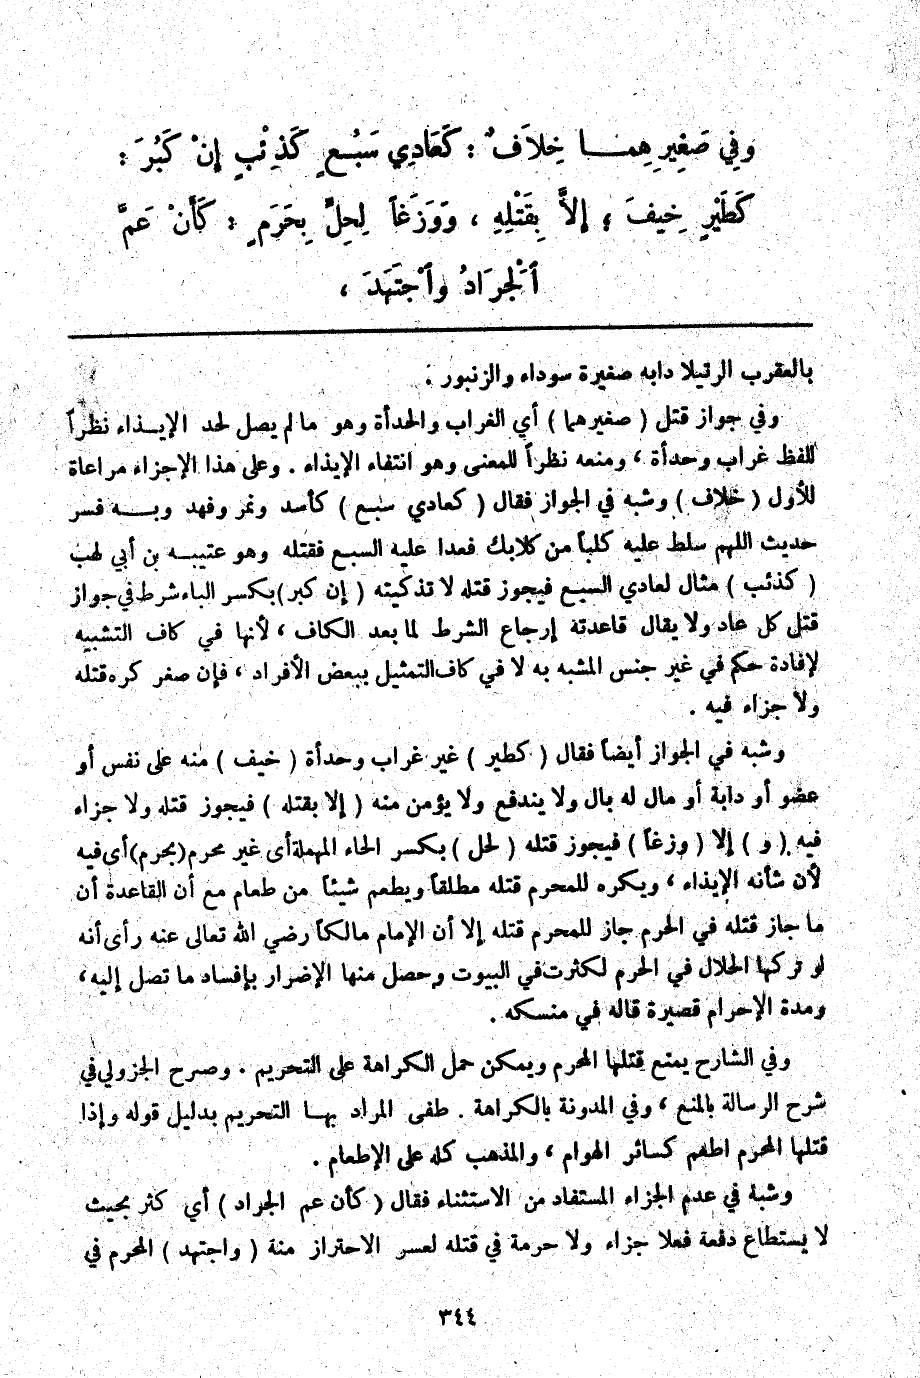 وفِي صَغِيرِهِمَا خِلاَفٌ : كَعَادِي سَبُعٍ كَذِئْبٍ إِنْ كَبُرَ :
كَطَيْرٍ خِيفَ ؛ إِلاَّ بِقَتْلِهِ ، وَوَزَغاً لِحِلٍّ بِحَرَمٍ : كَأَنْ عَمَّ
ٱلْجَرَادُ وٱجْتَهَدَ ،
بالعقرب الرتيلا دابه صغيرة سوداء والزنبور .
وفي جواز قتل ( صغيرهما ) أي الغراب والحدأة وهو ما لم يصل لحد الإيذاء نظراً
للفظ غراب وحدأة ، ومنعه نظراً للمعنى وهو انتفاء الإيذاء . وعلى هذا الإجزاء مراعاة
للأول ( خلاف ) وشبه في الجواز فقال ( كعادي سبع ) كأسد ونمر وفهد وبه فسر
حديث اللهم سلط عليه كلباً من كلابك فعدا عليه السبع فقتله وهو عتيبه بن أبي لهب
( كذئب ) مثال لعادي السبع فيجوز قتله لا تذكيته ( إن كبر ) بكسر الباء شرط في جواز
قتل كل عاد ولا يقال قاعدتة إرجاع الشرط لما بعد الكاف ، لأنها في كاف التشبيه
لإفادة حكم في غير جنس المشبه به لا في كاف التمثيل ببعض الأفراد ، فإن صغر كره قتله
ولا جزاء فيه .
وشبه في الجواز أيضاً فقال ( كطير ) غير غراب وحدأة ( خيف ) منه على نفس أو
عضو أو دابة أو مال له بال ولا يندفع ولا يؤمن منه ( إلا بقتله ) فيجوز قتله ولا جزاء
فيه ( و ) إلا ( وزغاً ) فيجوز قتله ( لحل ) بكسر الحاء المهملة أى غير محرم (بحرم) أى فيه
لأن شأنه الإيذاء ، ويكره للمحرم قتله مطلقاً ويطعم شيئاً من طعام مع أن القاعدة أن
ما جاز قتله في الحرم جاز للمحرم قتله إلا أن الإمام مالكاً رضي الله تعالى عنه رأى أنه
لو تركها الحلال في الحرم لكثرت في البيوت وحصل منها الإضرار بإفساد ما تصل إليه ،
ومدة الإحرام قصيرة قاله في منسكه .
وفي الشارح يمنع قتلها المحرم ويمكن حمل الكراهة على التحريم . وصرح الجزولي في
شرح الرسالة بالمنع ، وفي المدونة بالكراهة . طفى المراد بها التحريم بدليل قوله وإذا
قتلها المحرم اطعم كسائر الهوام ، والمذهب كله على الإطعام .
وشبة في عدم الجزاء المستفاد من الاستثناء فقال ( كأن عم الجراد ) أي كثر بحيث
لا يستطاع دفعة فعلا جزاء ولا حرمة في قتله لعسر الاحتراز منة ( واجتهد ) المحرم في
٣٤٤